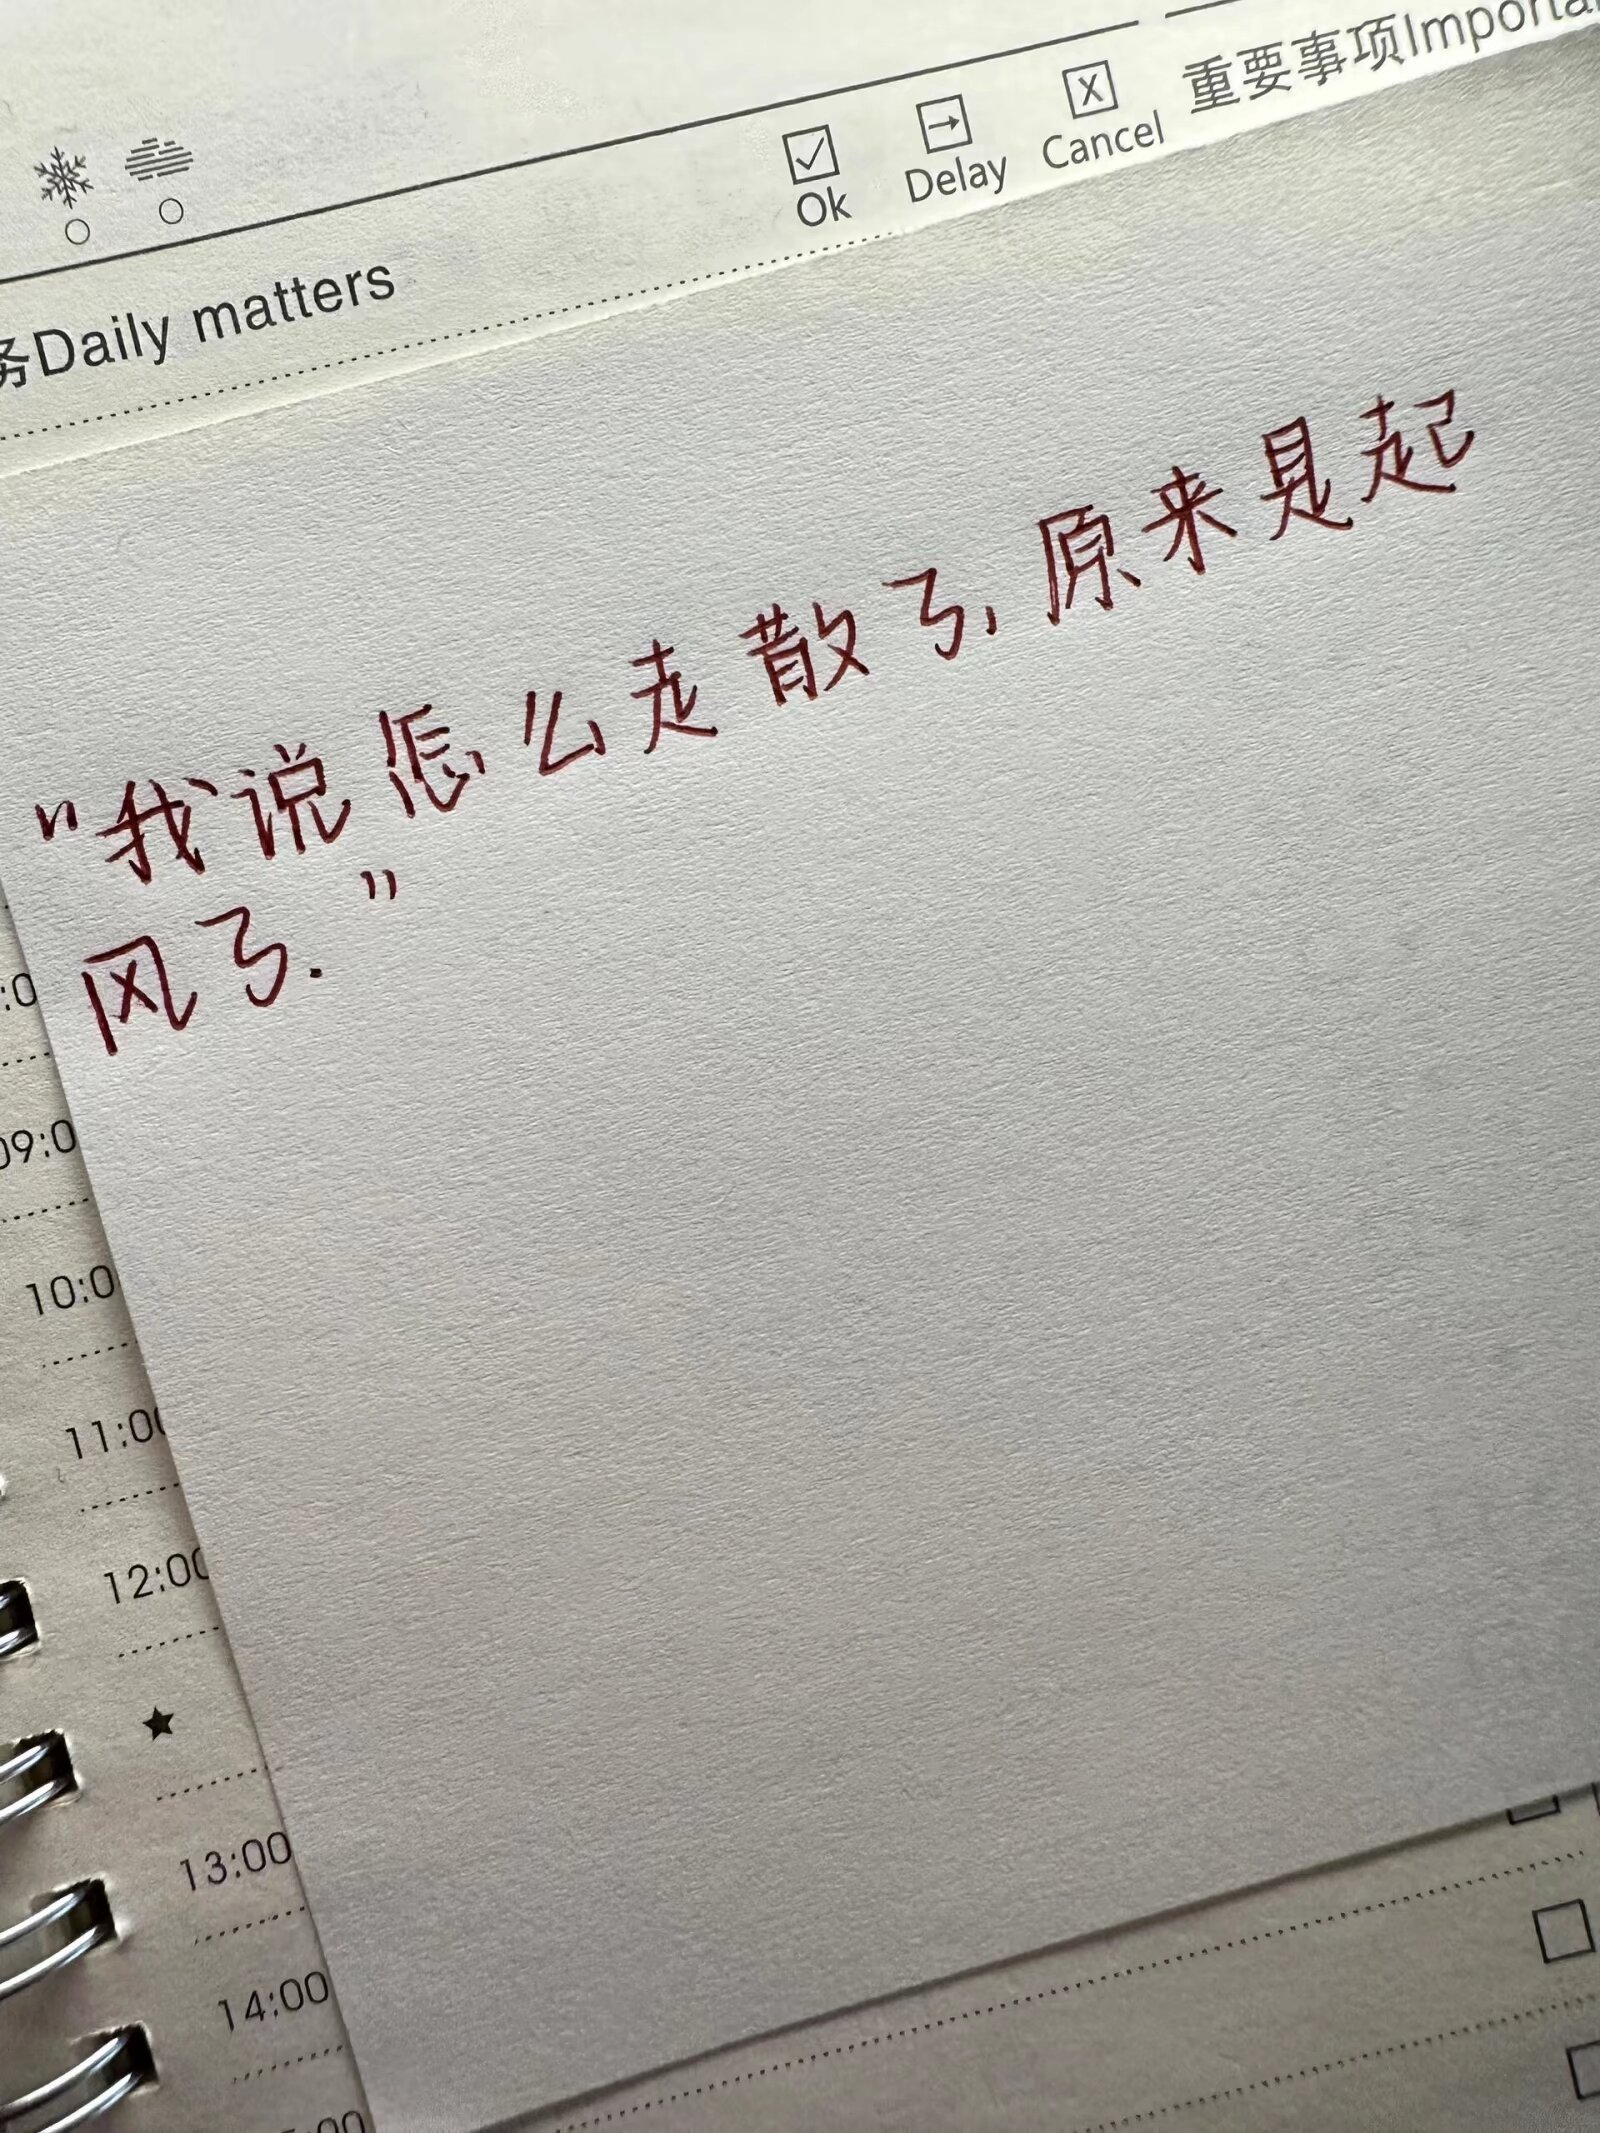 重要事项Importa
Ok Delay Cancel
务Daily matters
“我说怎么走散了,原来是起
风了.”
:0
09:0
10:0
11:00
12:00
13:00
14:00
:00